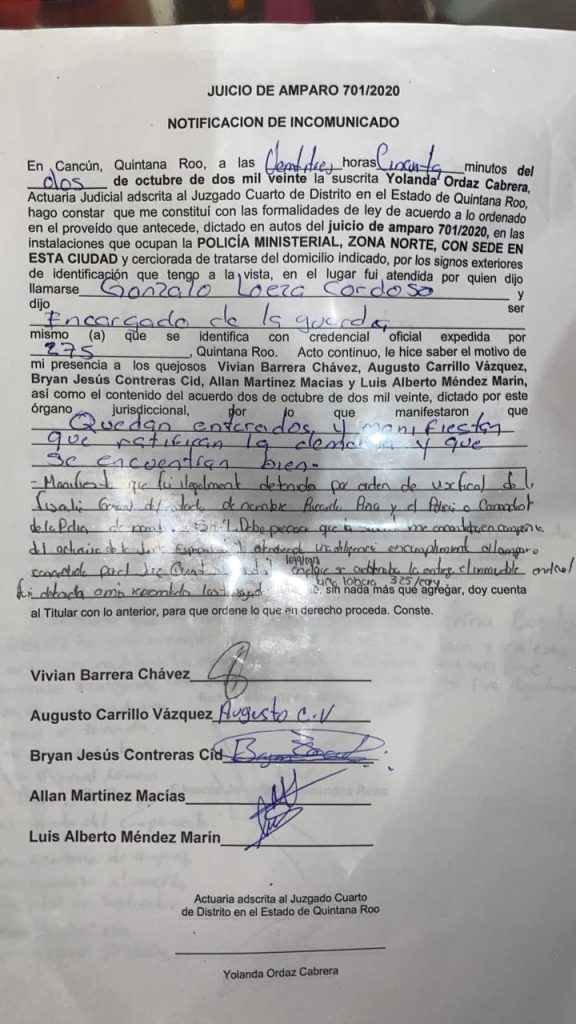 JUICIO DE AMPARO 701/2020
NOTIFICACION DE INCOMUNICADO
En Cancún, Quintana Roo, a las Veintitres horas Cincuenta minutos del
dos de octubre de dos mil veinte la suscrita Yolanda Ordaz Cabrera,
Actuaria Judicial adscrita al Juzgado Cuarto de Distrito en el Estado de Quintana Roo,
hago constar que me constituí con las formalidades de ley de acuerdo a lo ordenado
en el proveído que antecede, dictado en autos del juicio de amparo 701/2020, en las
instalaciones que ocupan la POLICÍA MINISTERIAL, ZONA NORTE, CON SEDE EN
ESTA CIUDAD y cerciorada de tratarse del domicilio indicado, por los signos exteriores
de identificación que tengo a la vista, en el lugar fui atendida por quien dijo
llamarse Gonzalo Loeza Cordoso y
dijo ser
Encargado de la guardia,
mismo (a) que se identifica con credencial oficial expedida por
275, Quintana Roo. Acto continuo, le hice saber el motivo de
mi presencia a los quejosos Vivian Barrera Chávez, Augusto Carrillo Vázquez,
Bryan Jesús Contreras Cid, Allan Martínez Macías y Luis Alberto Méndez Marín,
así como el contenido del acuerdo dos de octubre de dos mil veinte, dictado por este
órgano jurisdiccional, por lo que manifestaron que
Quedan enterados, y manifiestan
que ratifican la demanda y que
se encuentran bien-
- Manifiest que fui ilegalmente detenida por orden de
Fiscalía General del de nombre Ricardo y el Policía o Comandante
de la Debo precisar que la me encontraba en compañía
del actuario cumplimiento al amparo
1699/2018
concedido por el Juez el inmueble
325/2019
fui detenida sin nada más que agregar, doy cuenta
al Titular con lo anterior, para que ordene lo que en derecho proceda. Conste.
Vivian Barrera Chávez
Augusto Carrillo Vázquez Augusto C.V
Bryan Jesús Contreras Cid
Allan Martínez Macías
Luis Alberto Méndez Marín
Actuaria adscrita al Juzgado Cuarto
de Distrito en el Estado de Quintana Roo
Yolanda Ordaz Cabrera